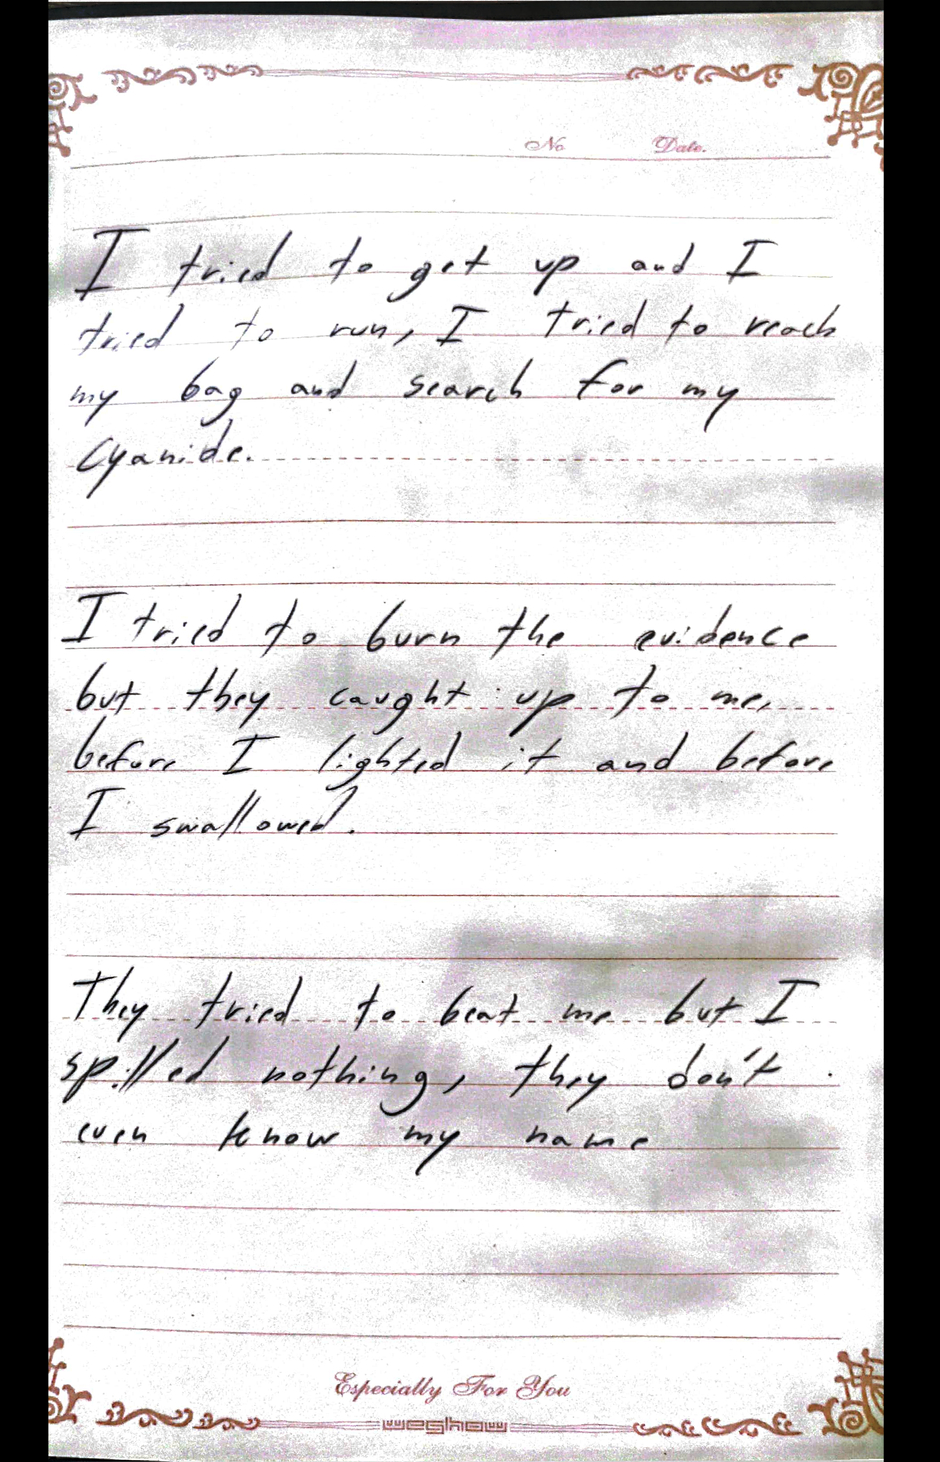 No Date.
I tried to get up and I
tried to run, I tried to reach
my bag and search for my
cyanide.
I tried to burn the evidence
but they caught up to me,
before I lighted it and before
I swallowed.
They tried to beat me but I
spilled nothing, they don't
even know my name
Especially For You
weghaw